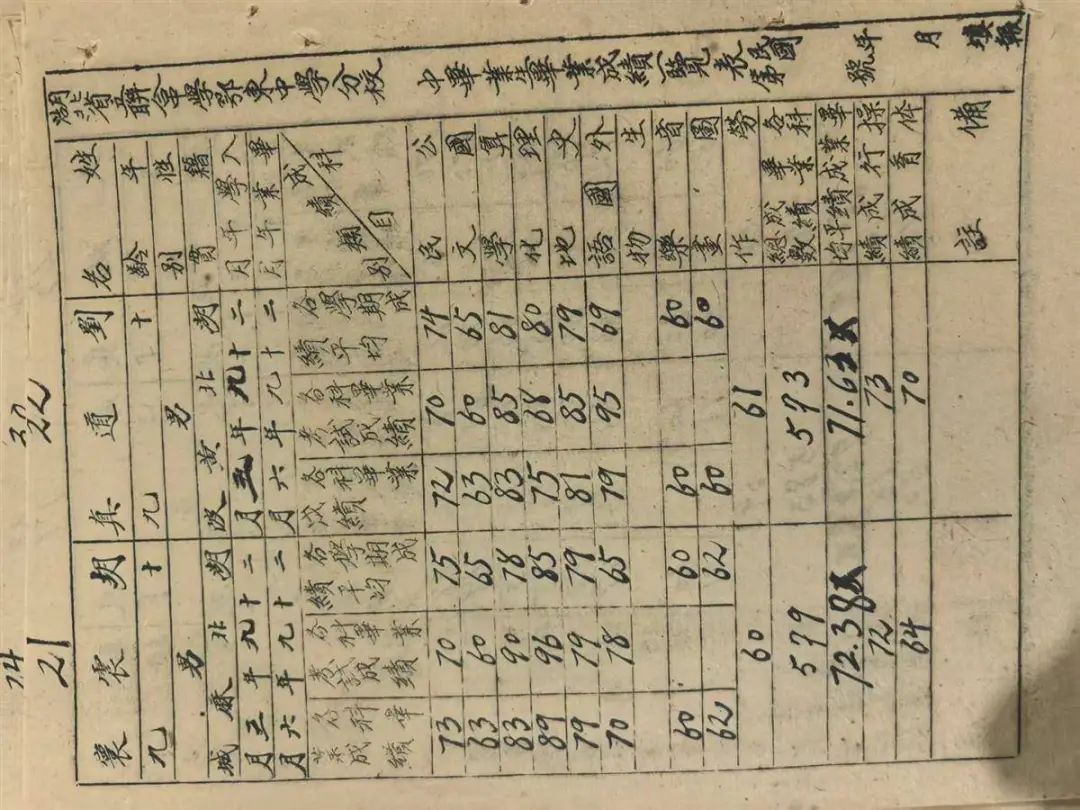 湖北省聯合中學鄂東中學分校 中學畢業生畢業成績一覽表 民國 年 月 填報
第 號
姓名 年齡 性別 籍貫 入學年月 畢業年月 科目 成績 類別 公民 國文 算學 理化 史地 外國語 生物 音樂 圖畫 勞作 各科畢業成績總數 畢業成績平均 操行成績 體育成績 備註
22
劉道真 十九 男 湖北黃陂 二十九年五月 二十九年六月
各學期成績平均 74 65 81 80 79 69 60 60
各科畢業考試成績 70 60 85 68 85 95
各科畢業成績 72 63 83 75 81 79 60 60
61 573 71.63 73 70
74
21
胡震寰 十九 男 湖北麻城 二十九年五月 二十九年六月
各學期成績平均 75 65 78 85 79 65 60 62
各科畢業考試成績 70 60 90 96 79 78
各科畢業成績 73 63 83 89 79 70 60 62
60 579 72.38 72 64